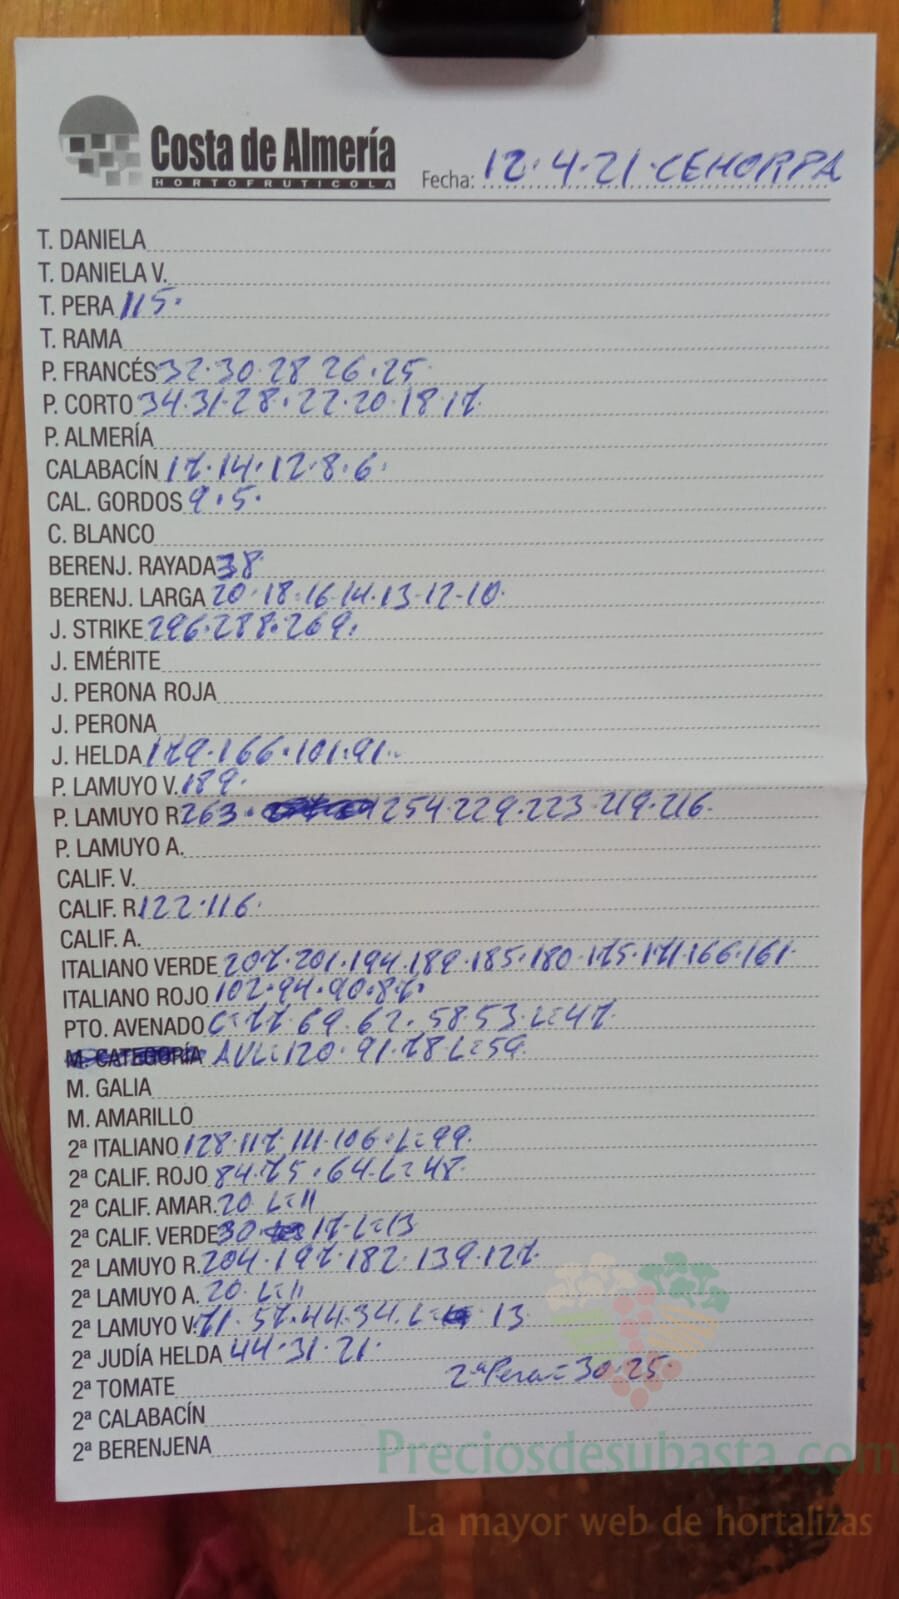 Costa de Almería
HORTOFRUTICOLA
Fecha: 12·4·21·CEHORPA
T. DANIELA
T. DANIELA V.
T. PERA 115·
T. RAMA
P. FRANCÉS 32·30·28 26·25
P. CORTO 34·31·28·22·20·18·17
P. ALMERÍA
CALABACÍN 17·14·12·8·6·
CAL. GORDOS 9·5·
C. BLANCO
BERENJ. RAYADA 38
BERENJ. LARGA 20·18·16·14·13·12·10·
J. STRIKE 296·288·269·
J. EMÉRITE
J. PERONA ROJA
J. PERONA
J. HELDA 179·166·101·91·
P. LAMUYO V. 189·
P. LAMUYO R 263· 254·229·223·219·216·
P. LAMUYO A.
CALIF. V.
CALIF. R. 122·116·
CALIF. A.
ITALIANO VERDE 207·201·194·189·185·180·175·171·166·161·
ITALIANO ROJO 102·94·90·87·
PTO. AVENADO C=77 69·62·58 53·L=47
M. CATEGORÍA AVL=120·91·78 L=59
M. GALIA
M. AMARILLO
2ª ITALIANO 128·117·111·106·L=99
2ª CALIF. ROJO 84·75·64·L=48
2ª CALIF. AMAR. 20 L=11
2ª CALIF. VERDE 30 17·L=13
2ª LAMUYO R. 204·197·182·139·127
2ª LAMUYO A. 20·L=11
2ª LAMUYO V. 71·57·44·34·L= 13
2ª JUDÍA HELDA 44·31·21·
2ª Pera=30·25·
2ª TOMATE
2ª CALABACÍN
2ª BERENJENA
Preciosdesubasta.com
La mayor web de hortalizas